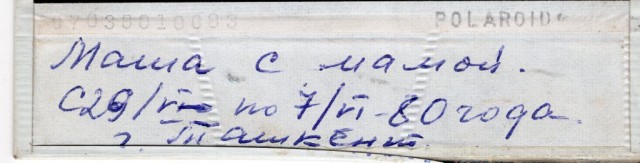 07030010003 POLAROID®
Маша с мамой.
С 29/VI по 7/VI-80 года.
г. Ташкент.